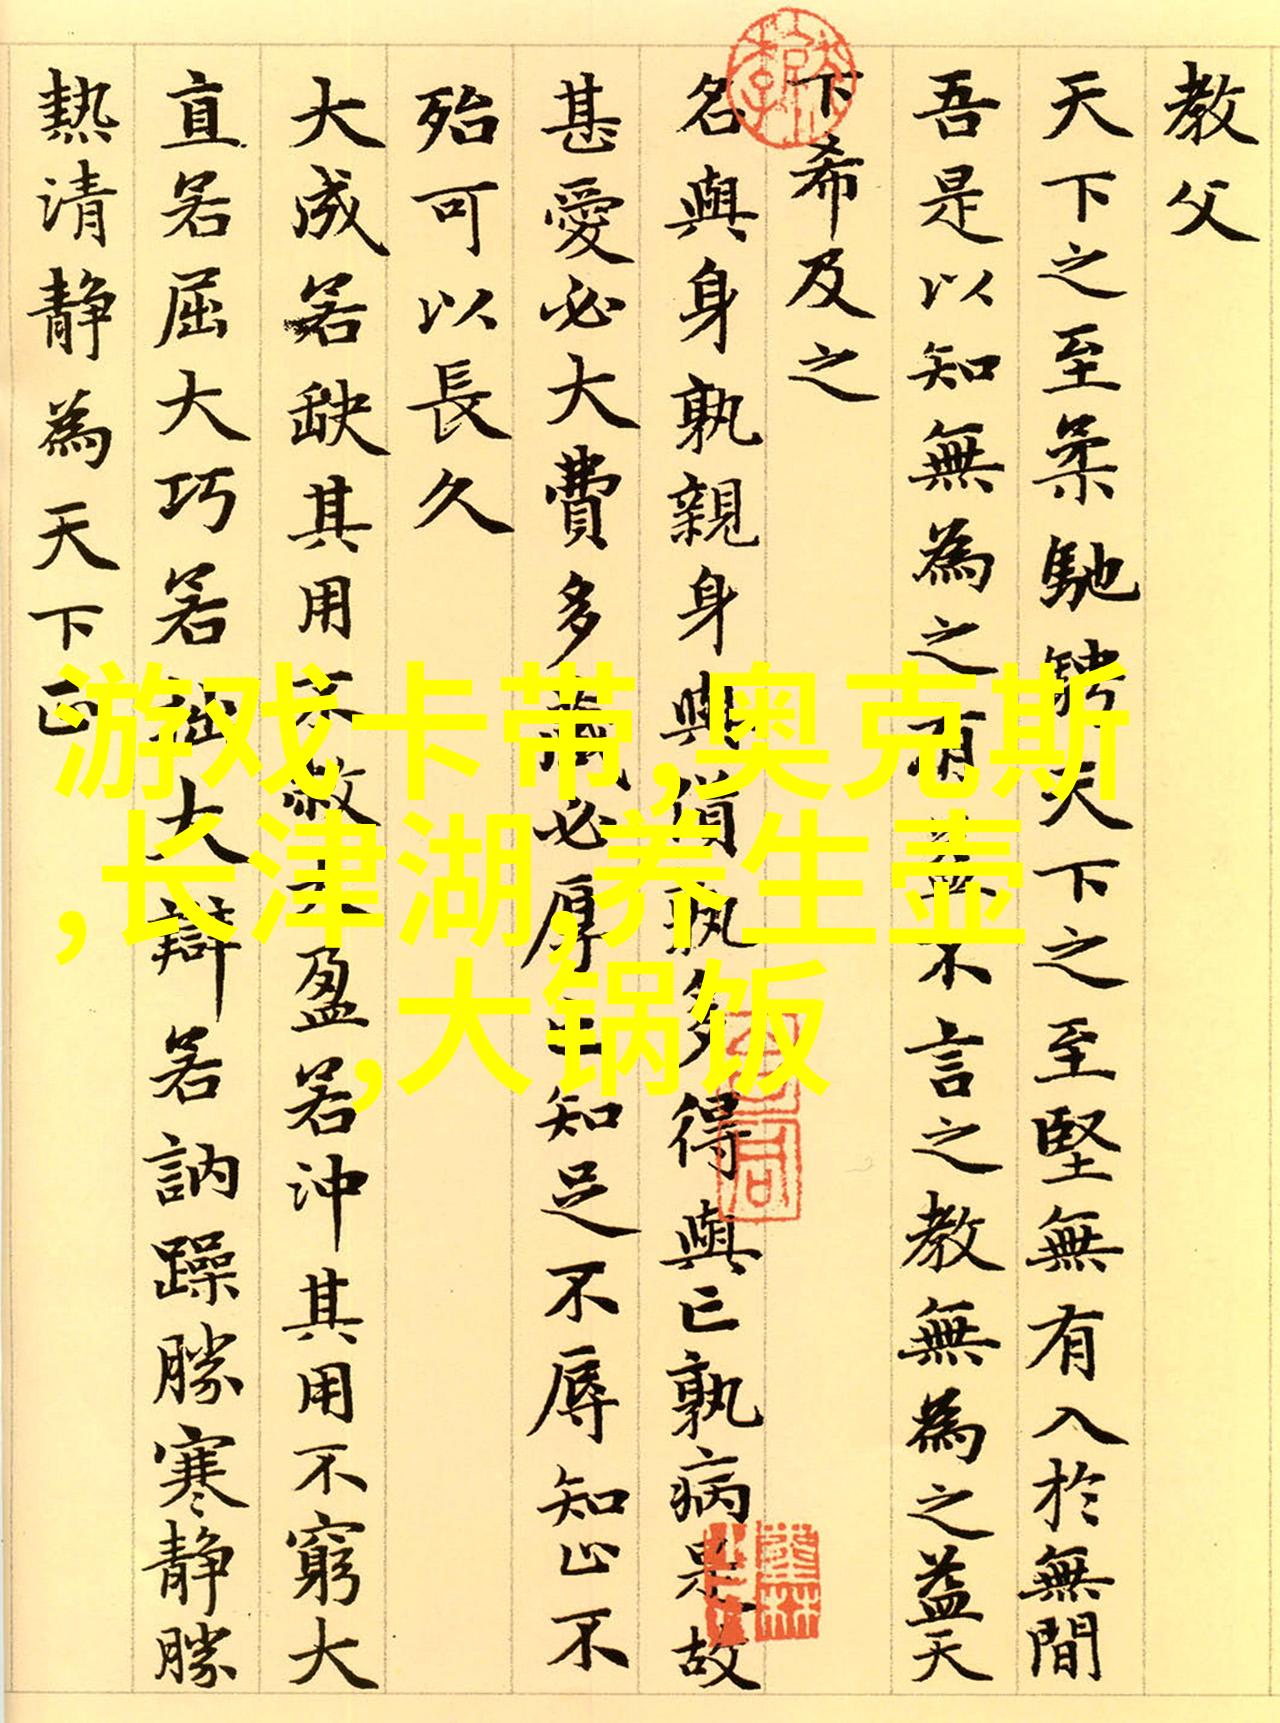 教父
天下之至柔馳騁天下之至堅無有入於無間
吾是以知無為之有益不言之教無為之益天
下希及之
名與身孰親身與貨孰多得與亡孰病是故
甚愛必大費多藏必厚亡知足不辱知止不
殆可以長久
大成若缺其用不敝大盈若沖其用不窮大
直若屈大巧若拙大辯若訥躁勝寒靜勝
熱清靜為天下正
游戏卡带,奥克斯
,长津湖,养生壶
,大锅饭